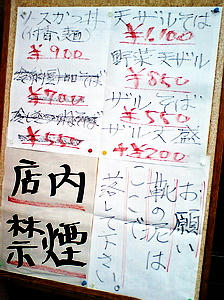 ソースかつ丼
¥900
¥700
¥550
天ザルそば
¥1,100
野菜天ザル
¥850
ザルそば
¥550
ザル大盛
+¥200
店内
禁煙
お願い
靴の泥は
ここで
落して下さい。